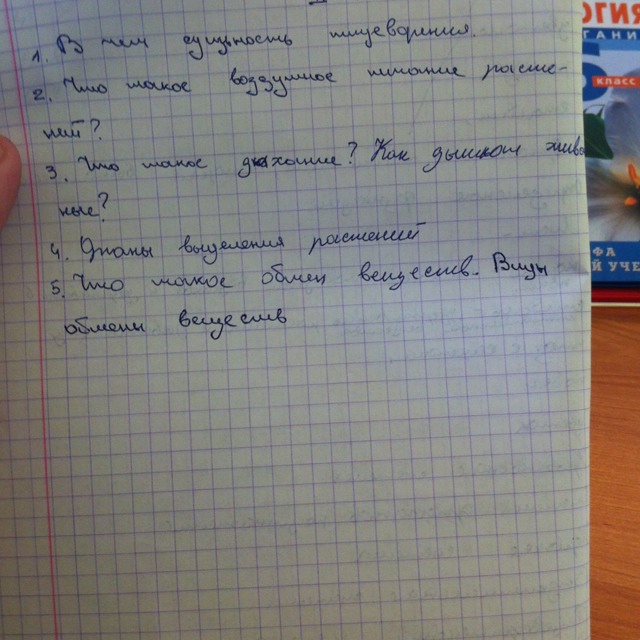 1. В чем сущность пищеварения.
2. Что такое воздушное питание расте-
ний?
3. Что такое дыхание? Как дышат живо
ные?
4. Органы выделения растений
5. Что такое обмен веществ. Виды
обмены веществ
ОГИЯ
ГАНИ
класс
ФА
Й УЧЕ